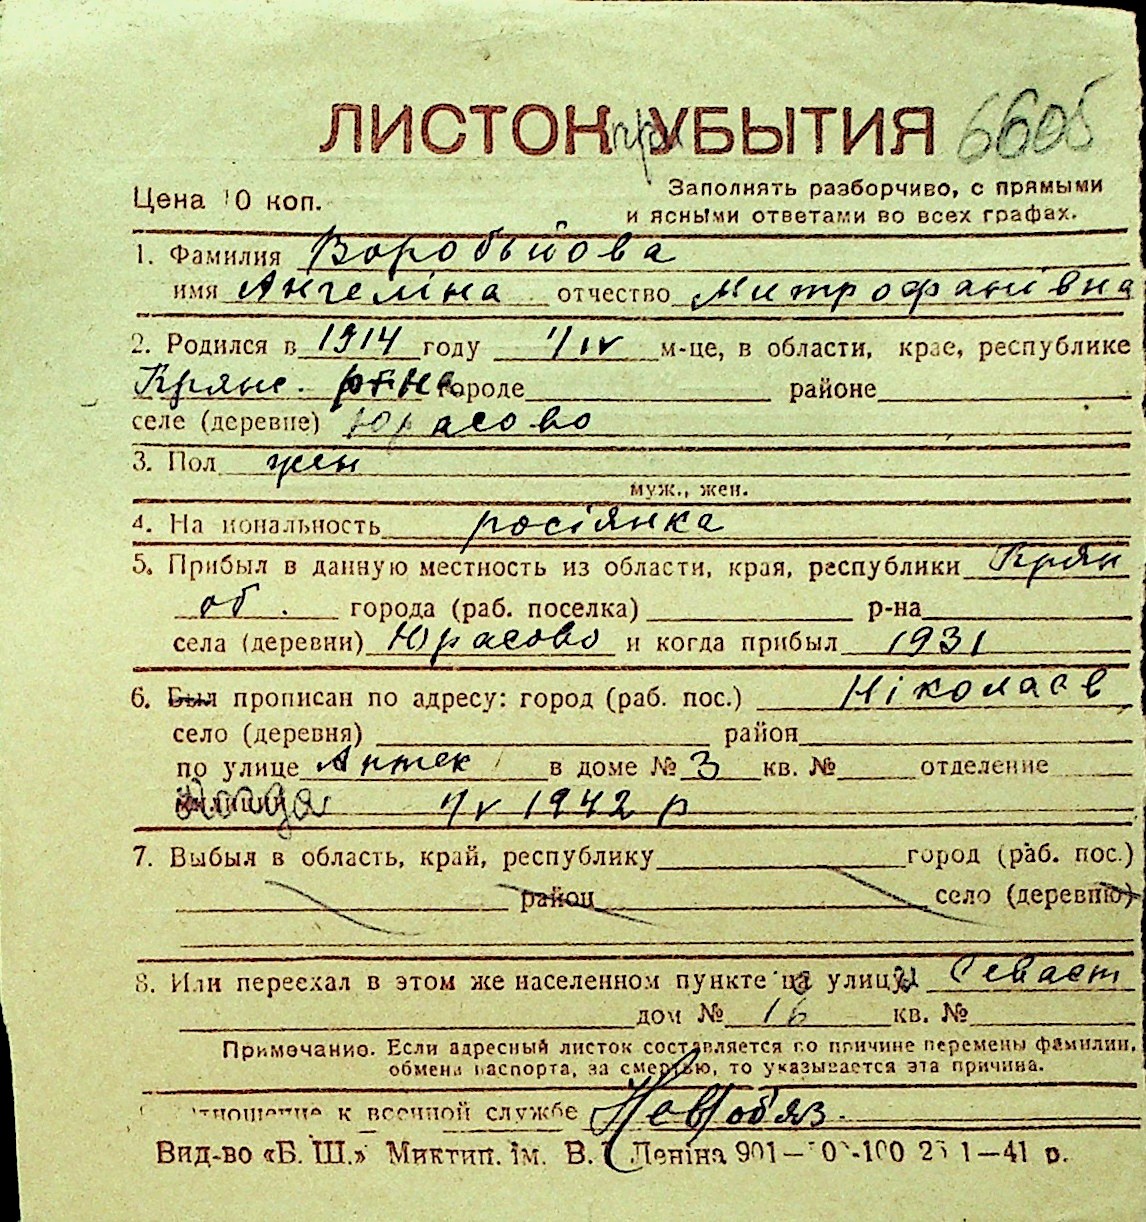 ЛИСТОК при УБЫТИЯ 6605
Цена 10 коп.
Заполнять разборчиво, с прямыми
и ясными ответами во всех графах.
1. Фамилия Воробьйова
имя Ангеліна отчество Митрофанівна
2. Родился в 1914 году 1/IV м-це, в области, крае, республике
городе районе
селе (деревне) Юрасово
3. Пол жен
муж., жен.
4. Национальность росіянка
5. Прибыл в данную местность из области, края, республики
об. города (раб. поселка) р-на
села (деревни) Юрасово и когда прибыл 1931
6. Был прописан по адресу: город (раб. пос.) Ніколаєв
село (деревня) район
по улице Аптек в доме № 3 кв. № отделение
1942 р
7. Выбыл в область, край, республику город (раб. пос.)
район село (деревню)
8. Или переехал в этом же населенном пункте улицы Севаст
дом № 16 кв. №
Примечание. Если адресный листок составляется по причине перемены фамилии,
обмена паспорта, за смертью, то указывается эта причина.
отношение к военной службе Невобяз.
Вид-во «Б. Ш.» Миктип. ім. В. Леніна 901— 1—41 р.